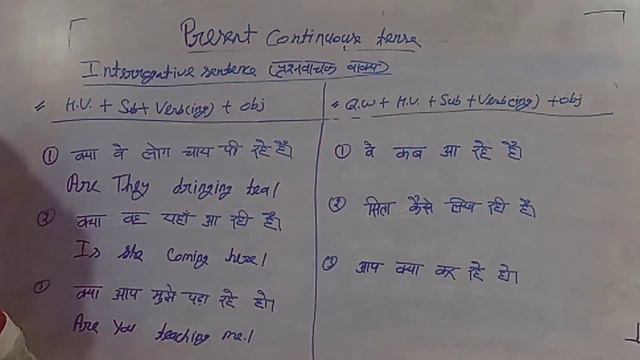 Present Continuous tense
Interrogative sentence (प्रश्नवाचक वाक्य)
H.V. + Sub + Verb(ing) + obj
① क्या वे लोग चाय पी रहे हैं।
Are They dringing tea।
② क्या वह यहाँ आ रही है।
Is she Coming here।
क्या आप मुझे पढ़ा रहे हो।
Are You teaching me.।
Q.W + H.V. + Sub + Verb(ing) + obj
① वे कब आ रहे हैं।
② सिता कैसे लिख रही है।
③ आप क्या कर रहे हो।